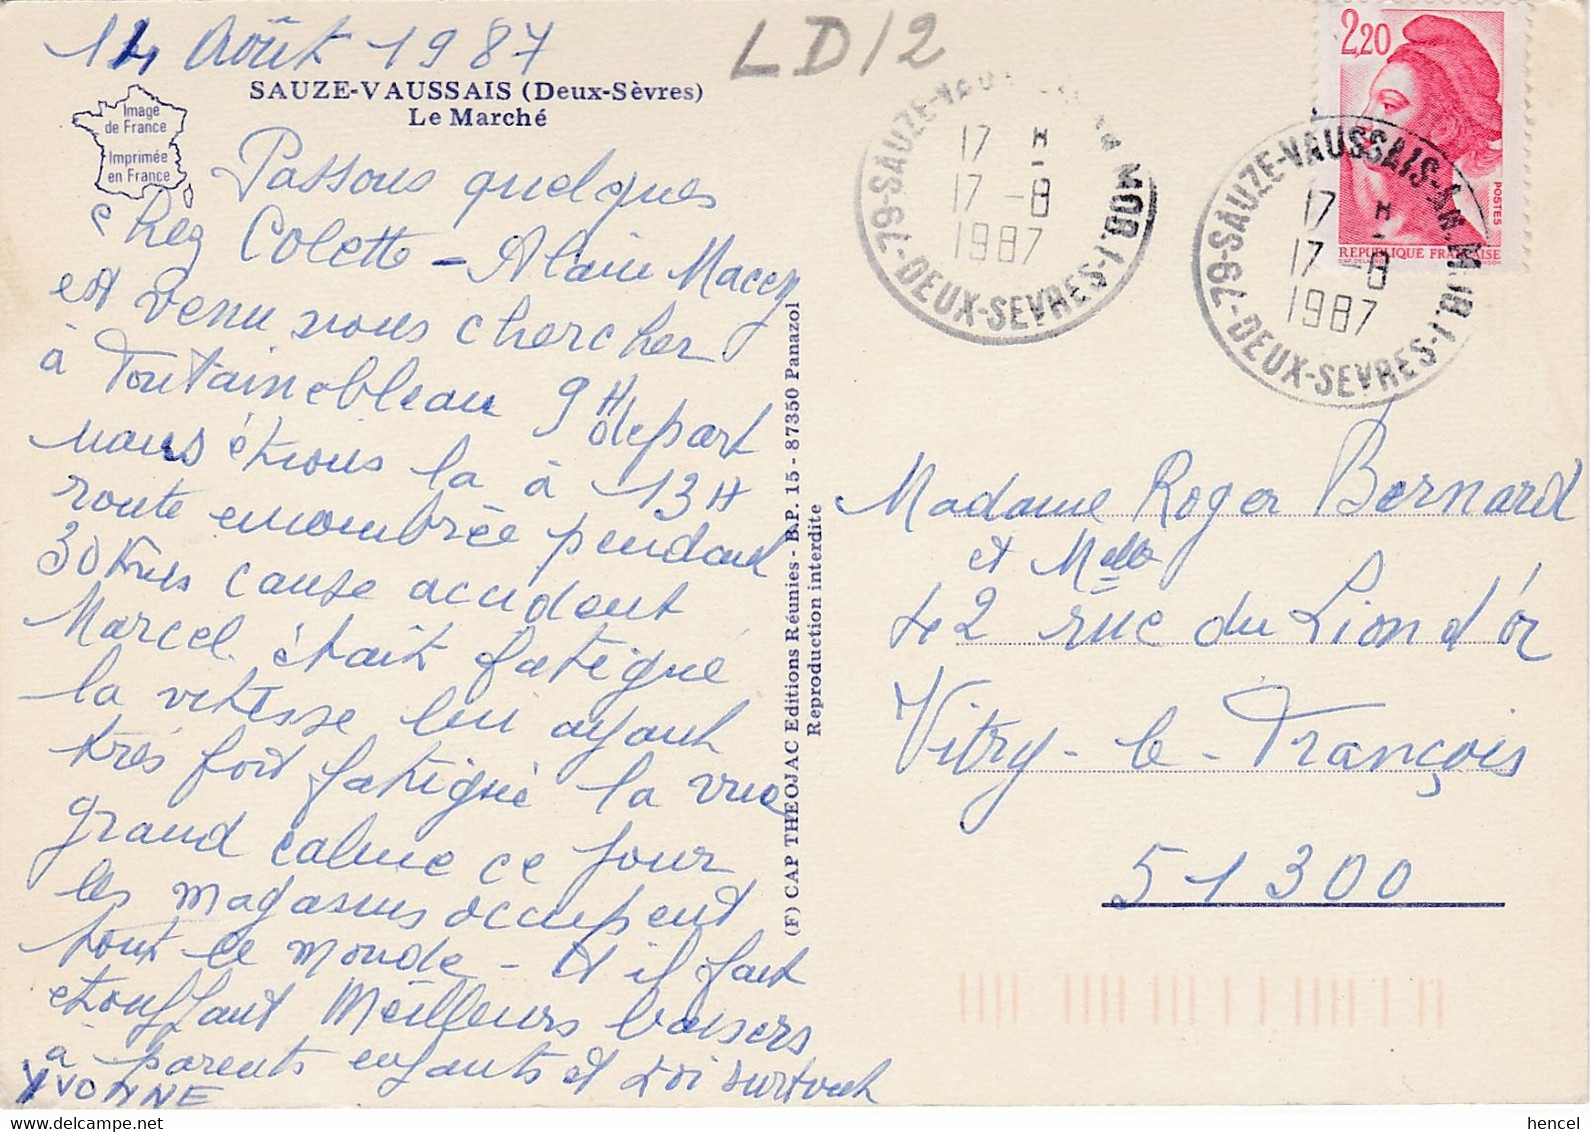 14 Août 1987
LD/2
SAUZE-VAUSSAIS (Deux-Sèvres)
Le Marché
Image
de France
Imprimée
en France
Passons quelques
chez Colette - Alain Macey
est venu nous chercher
à Fontainebleau 9H départ
nous étions la à 13H
route encombrée pendant
30 Kms cause accident
Marcel était fatigué
la vitesse lui ayant
très fort fatigué la vue
grand calme ce jour
les magasins occupent
tout le monde - et il fait
étouffant Meilleurs baisers
à parents enfants et toi surtout
YVONNE
(F) CAP THEOJAC Editions Réunies - B.P. 15 - 87350 Panazol
Reproduction interdite
79-SAUZE-VAUSSAIS-AN.MOB.1
17 H
17 -8
1987
-DEUX-SEVRES-
79-SAUZE-VAUSSAIS-AN.MOB.1
17 H
17 -8
1987
-DEUX-SEVRES-
2,20
POSTES
REPUBLIQUE FRANÇAISE
Madame Roger Bernard
et Melle
42 rue du Lion d'or
Vitry-le-François
51300
hencel